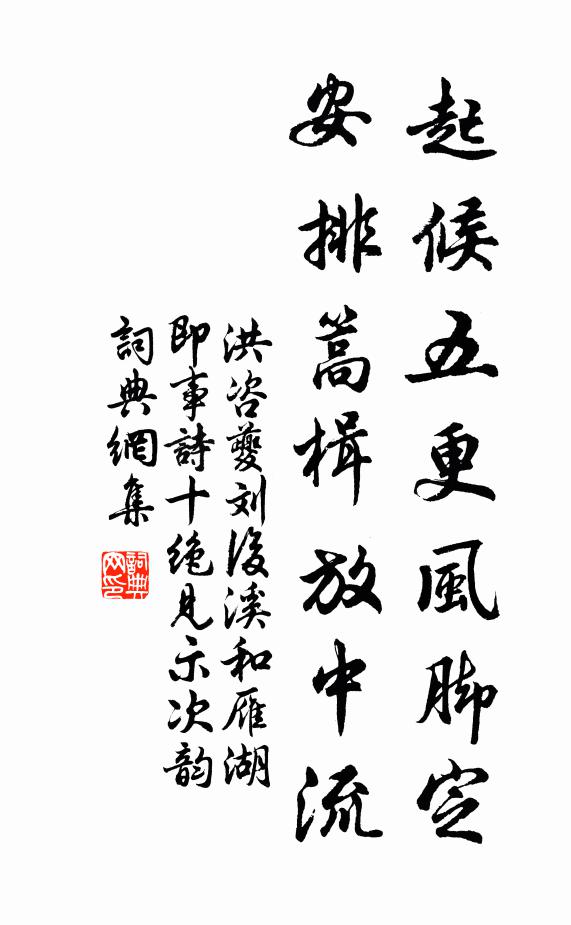 起候五更風脚定
安排篙楫放中流
洪咨夔刘後溪和雁湖
即事詩十絶見示次韵
詞典網集
詞典
网印